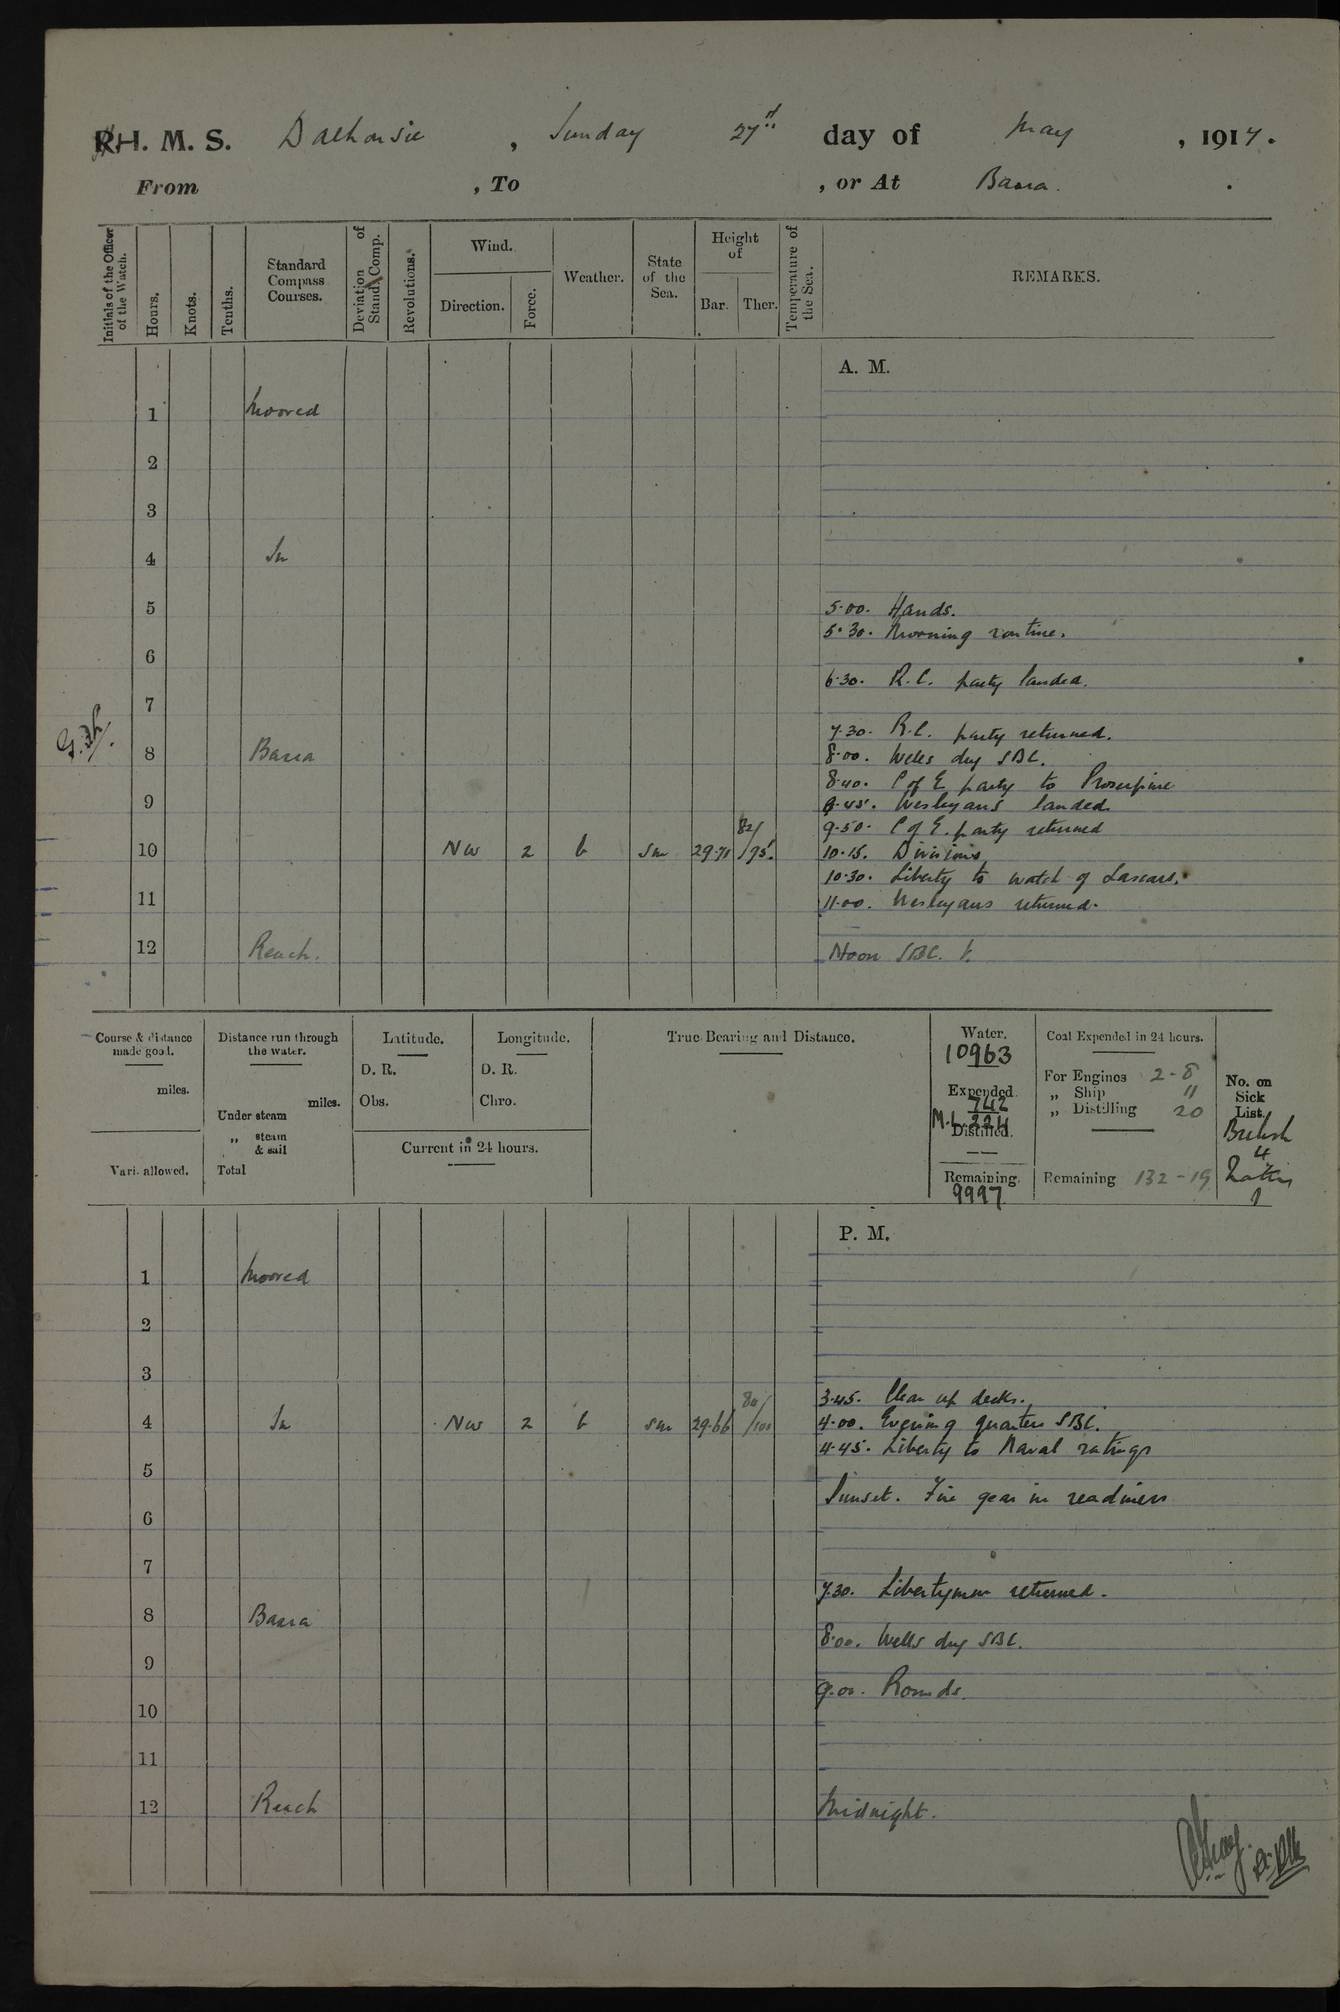 H. M. S. Dalhousie, Sunday 27th day of May, 1917.
From , To , or At Basra.
Initials of the Officer of the Watch.
Hours.
Knots.
Tenths.
Standard Compass Courses.
Deviation of Stand. Comp.
Revolutions.
Wind.
Direction.
Force.
Weather.
State of the Sea.
Height of
Bar.
Ther.
Temperature of the Sea.
REMARKS.
A. M.
1 Moored
2
3
4 In
5 5.00. Hands.
5.30. Morning routine.
6
6.30. R.C. party landed.
7
7.30. R.C. party returned.
8 Basra 8.00. Wells dry SBC.
8.40. C of E party to Proserpine
9 8.45. Wesleyans landed
9.50. C of E. party returned
10 NW 2 b sm 29.71 82/95. 10.15. Divisions
10.30. Liberty to watch of Lascars.
11 11.00. Wesleyans returned.
12 Reach. Noon SBC.
Course & distance made good.
miles.
Vari. allowed.
Distance run through the water.
miles.
Under steam
„ steam & sail
Total
Latitude.
D. R.
Obs.
Longitude.
D. R.
Chro.
Current in 24 hours.
True Bearing and Distance.
Water.
10963
Expended.
742
M.L. 224
Distilled.
— —
Remaining.
9997
Coal Expended in 24 hours.
For Engines 2-8
„ Ship "
„ Distilling 20
Remaining 132-19
No. on Sick List.
British
4
1
P. M.
1 Moored
2
3
3.45. Clear up decks.
4 In NW 2 b sm 29.66 80/100 4.00. Evening quarters SBC.
4.45. Liberty to Naval ratings
5
Sunset. Fire gear in readiness
6
7
7.30. Libertymen returned.
8 Basra
8.00. Wells dry SBC.
9
9.00. Rounds.
10
11
12 Reach Midnight.